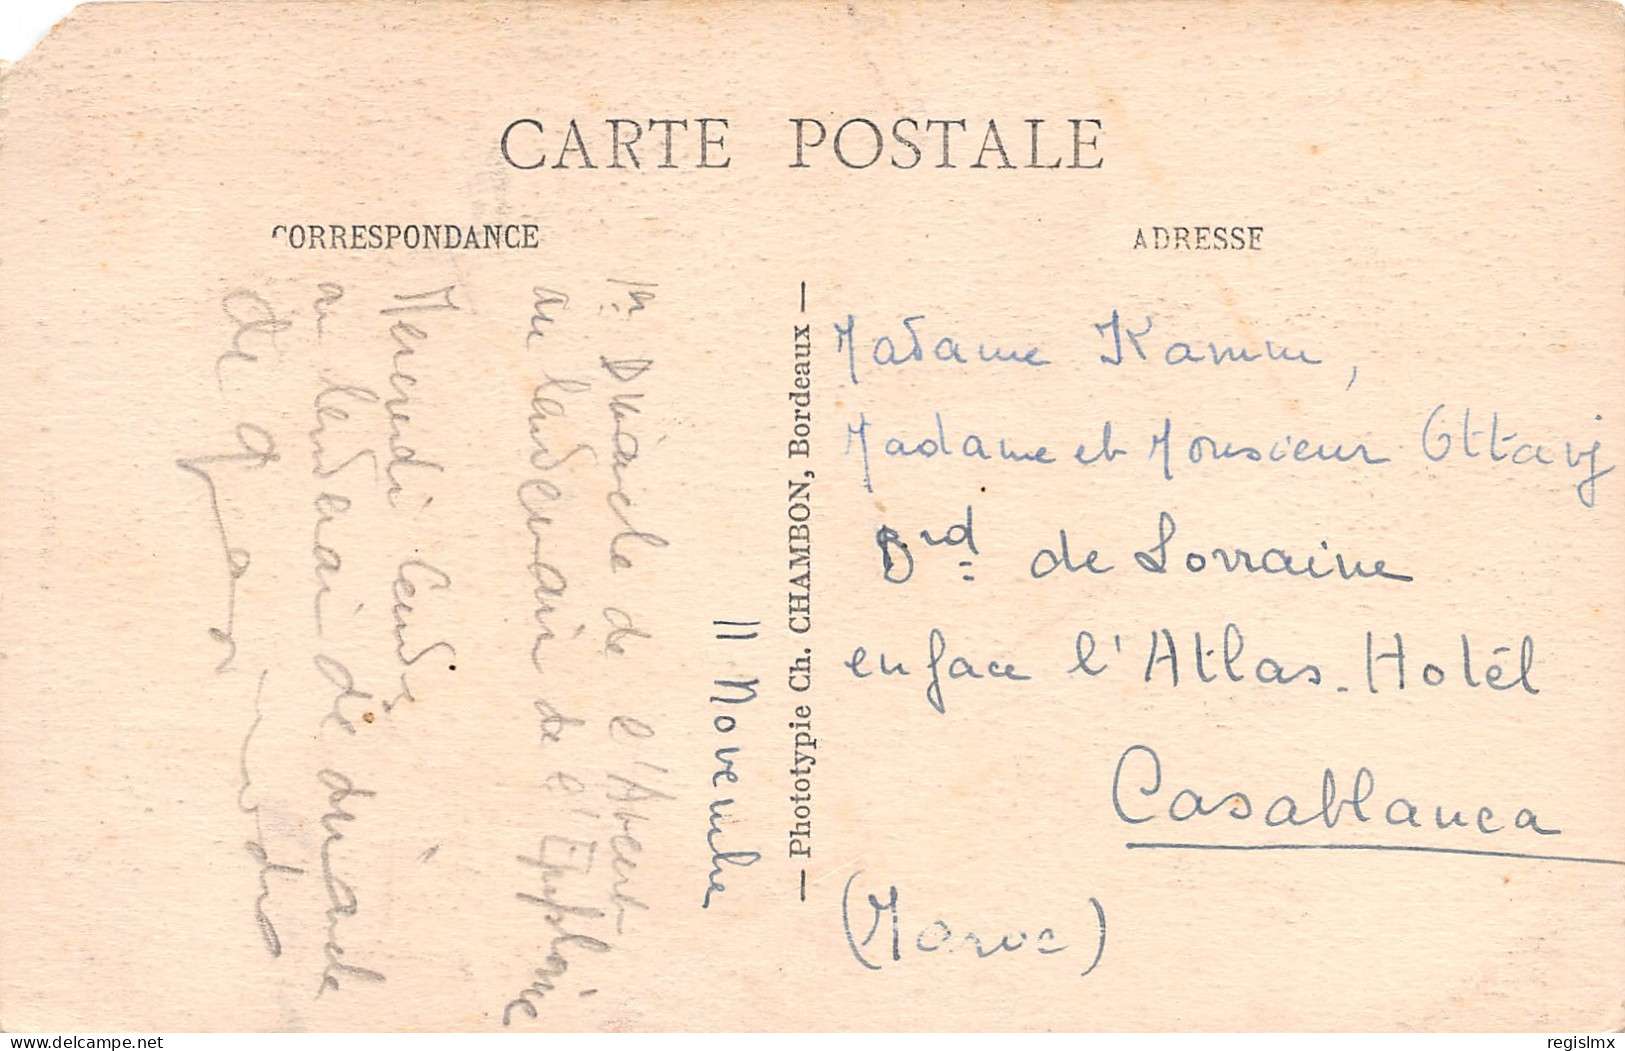 CARTE POSTALE
CORRESPONDANCE
ADRESSE
1er Dimanche de l'Avent
au lendemain de l'Epiphanie
Mercredi Cendres
au lendemain de dimanche
de
11 Novembre
— Phototypie Ch. CHAMBON, Bordeaux —
Madame Kamm,
Madame et Monsieur Ottavj
Brd de Lorraine
en face l'Atlas-Hotél
Casablanca
(Maroc)
delcampe.net
regislmx